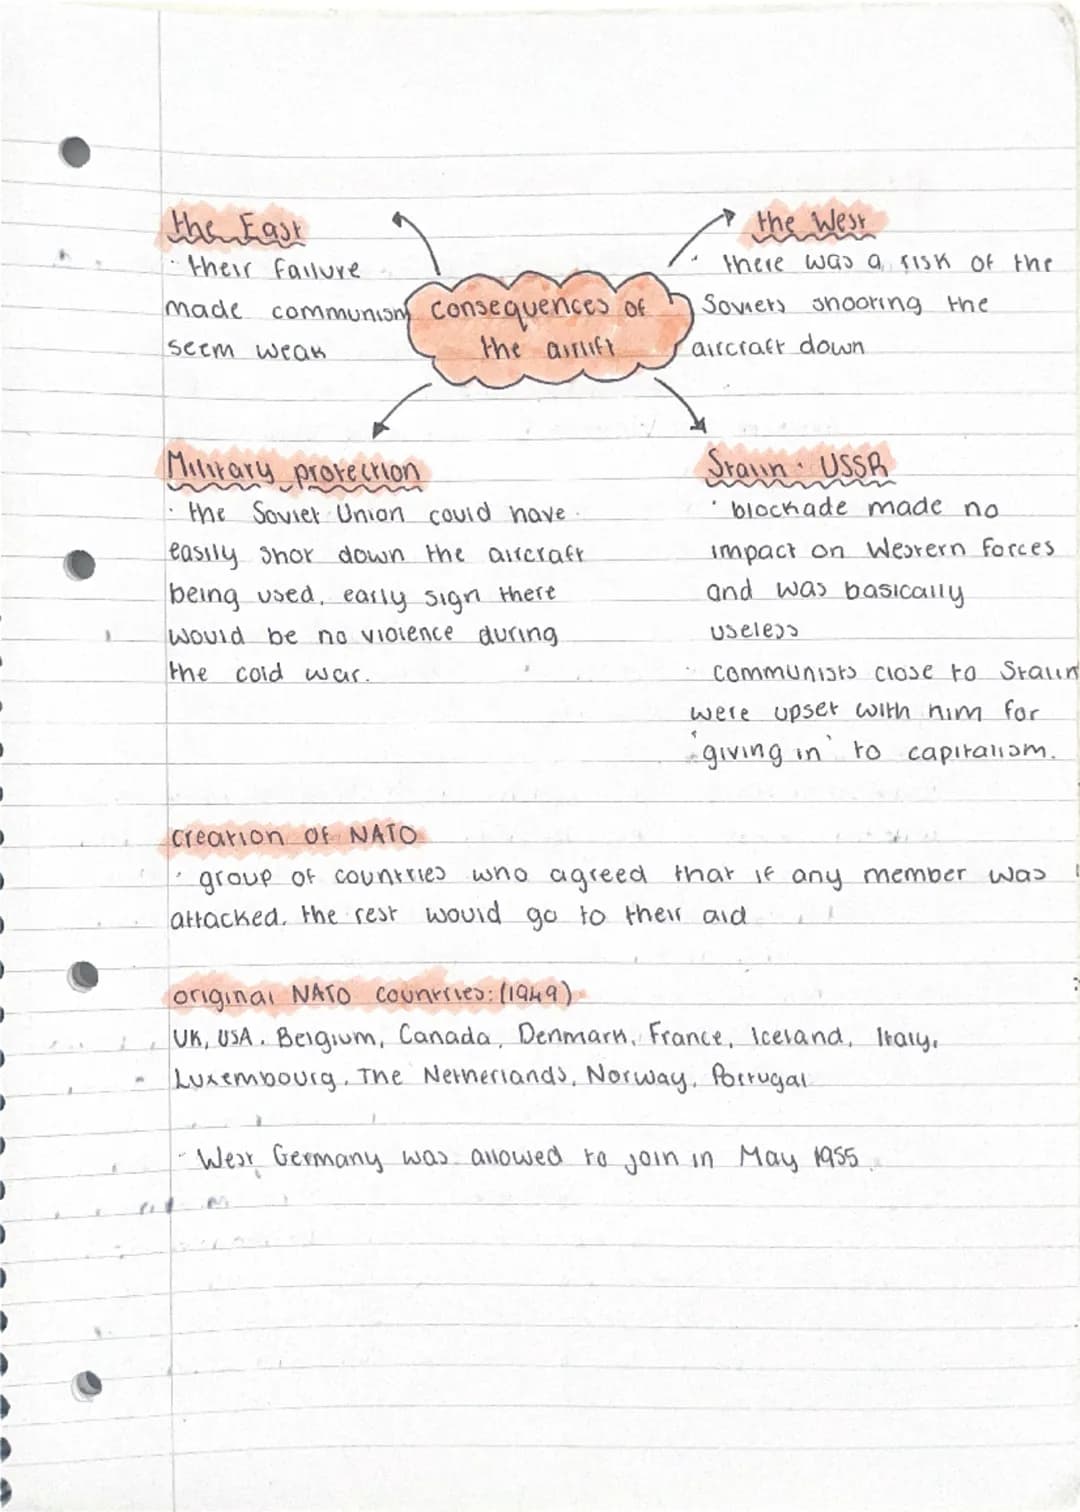 the East
· their failure
made communism
seem weak
consequences of
the airlift
the West
· there was a risk of the
Soviets shooting the
aircraft down
Military protection
· the Soviet Union could have
easily shot down the aircraft
being used, early sign there
would be no violence during
the cold war.
Stalin · USSR
· blockade made no
impact on Western forces
and was basically
useless
· communists close to Stalin
were upset with him for
'giving in' to capitalism.
creation of NATO
· group of countries who agreed that if any member was
attacked, the rest would go to their aid
original NATO countries: (1949)
UK, USA, Belgium, Canada, Denmark, France, Iceland, Italy,
Luxembourg, The Netherlands, Norway, Portugal
- West Germany was allowed to join in May 1955.